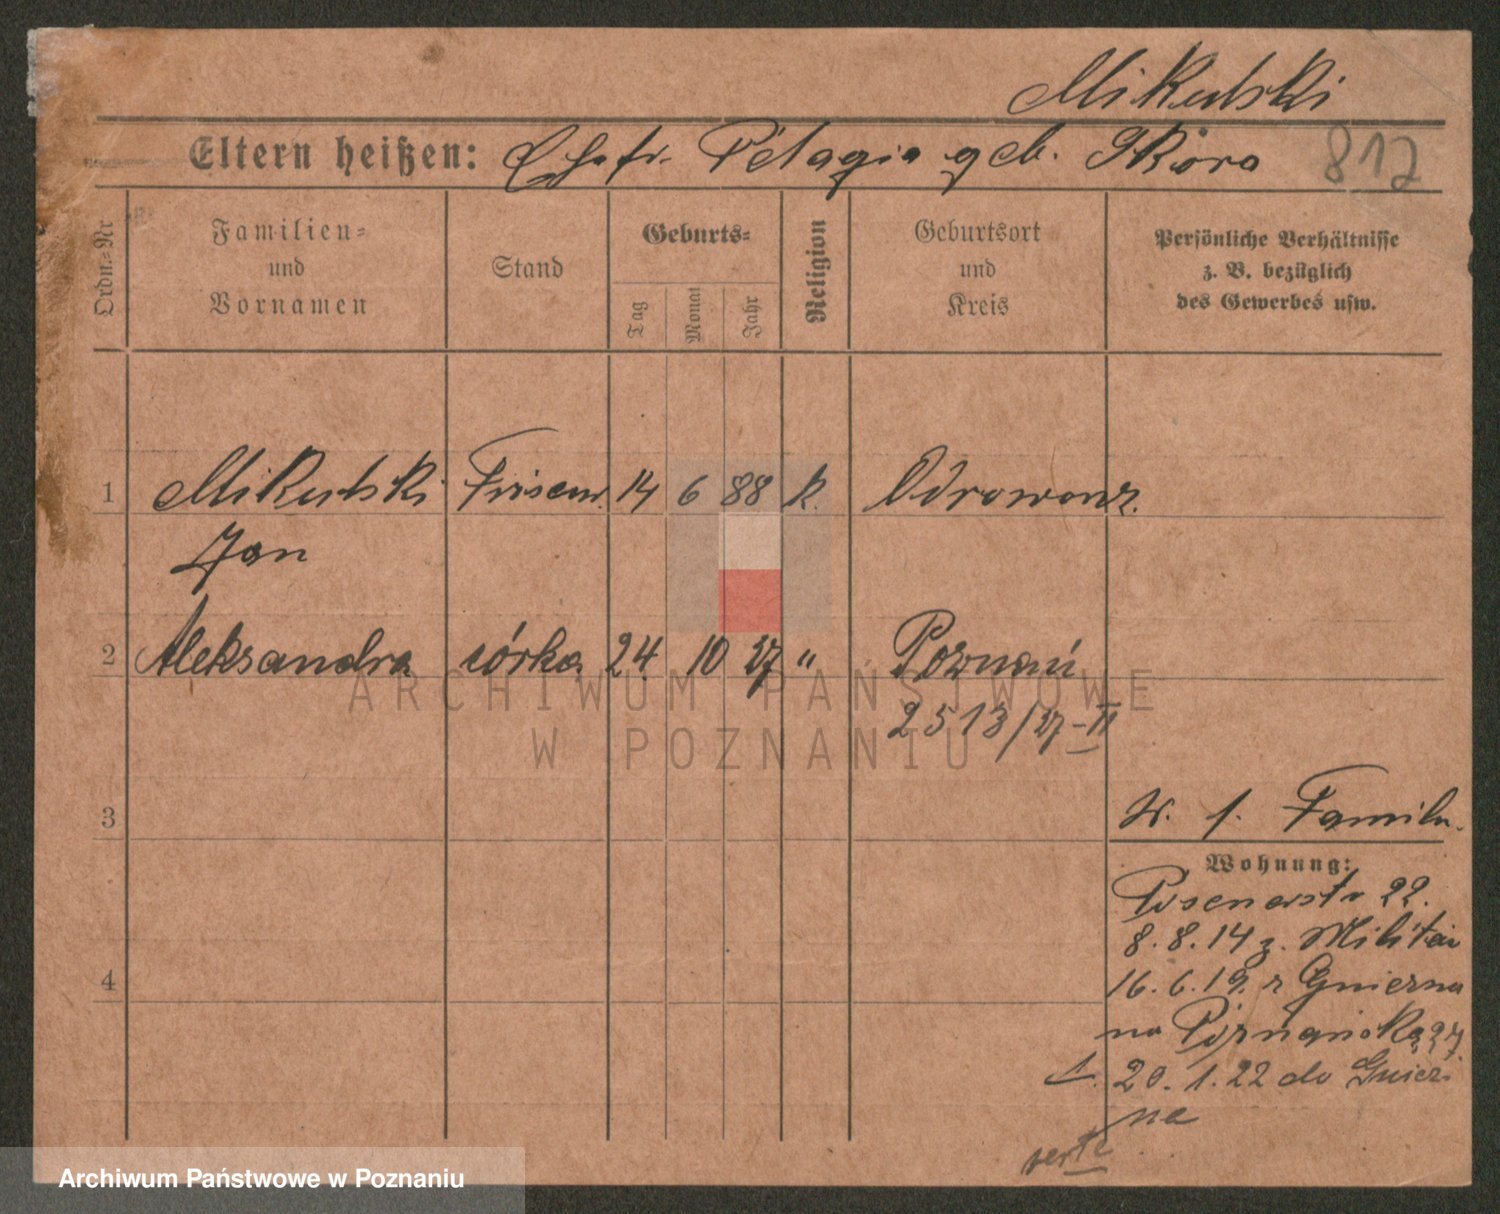 Mikulski
Eltern heißen: Ehefr. Pelagia geb. Skóra 817
Ordn.-Nr
Familien-
und
Vornamen
Stand
Geburts-
Tag
Monat
Jahr
Religion
Geburtsort
und
Kreis
Persönliche Verhältnisse
z. B. bezüglich
des Gewerbes usw.
1 Mikulski Friseur. 14 6 88 k. Odrowonz.
Jan
2 Aleksandra córka 24. 10 27 " Poznań
2513/27-II
3
W. s. Famil.
Wohnung:
Posenerstr 22.
8.8.14 z. Militär
16.6.19. z Gniezna
4
na Poznańską 27.
1. 20.1.22 do Gniez-
na
verte
ARCHIWUM PAŃSTWOWE
W POZNANIU
Archiwum Państwowe w Poznaniu